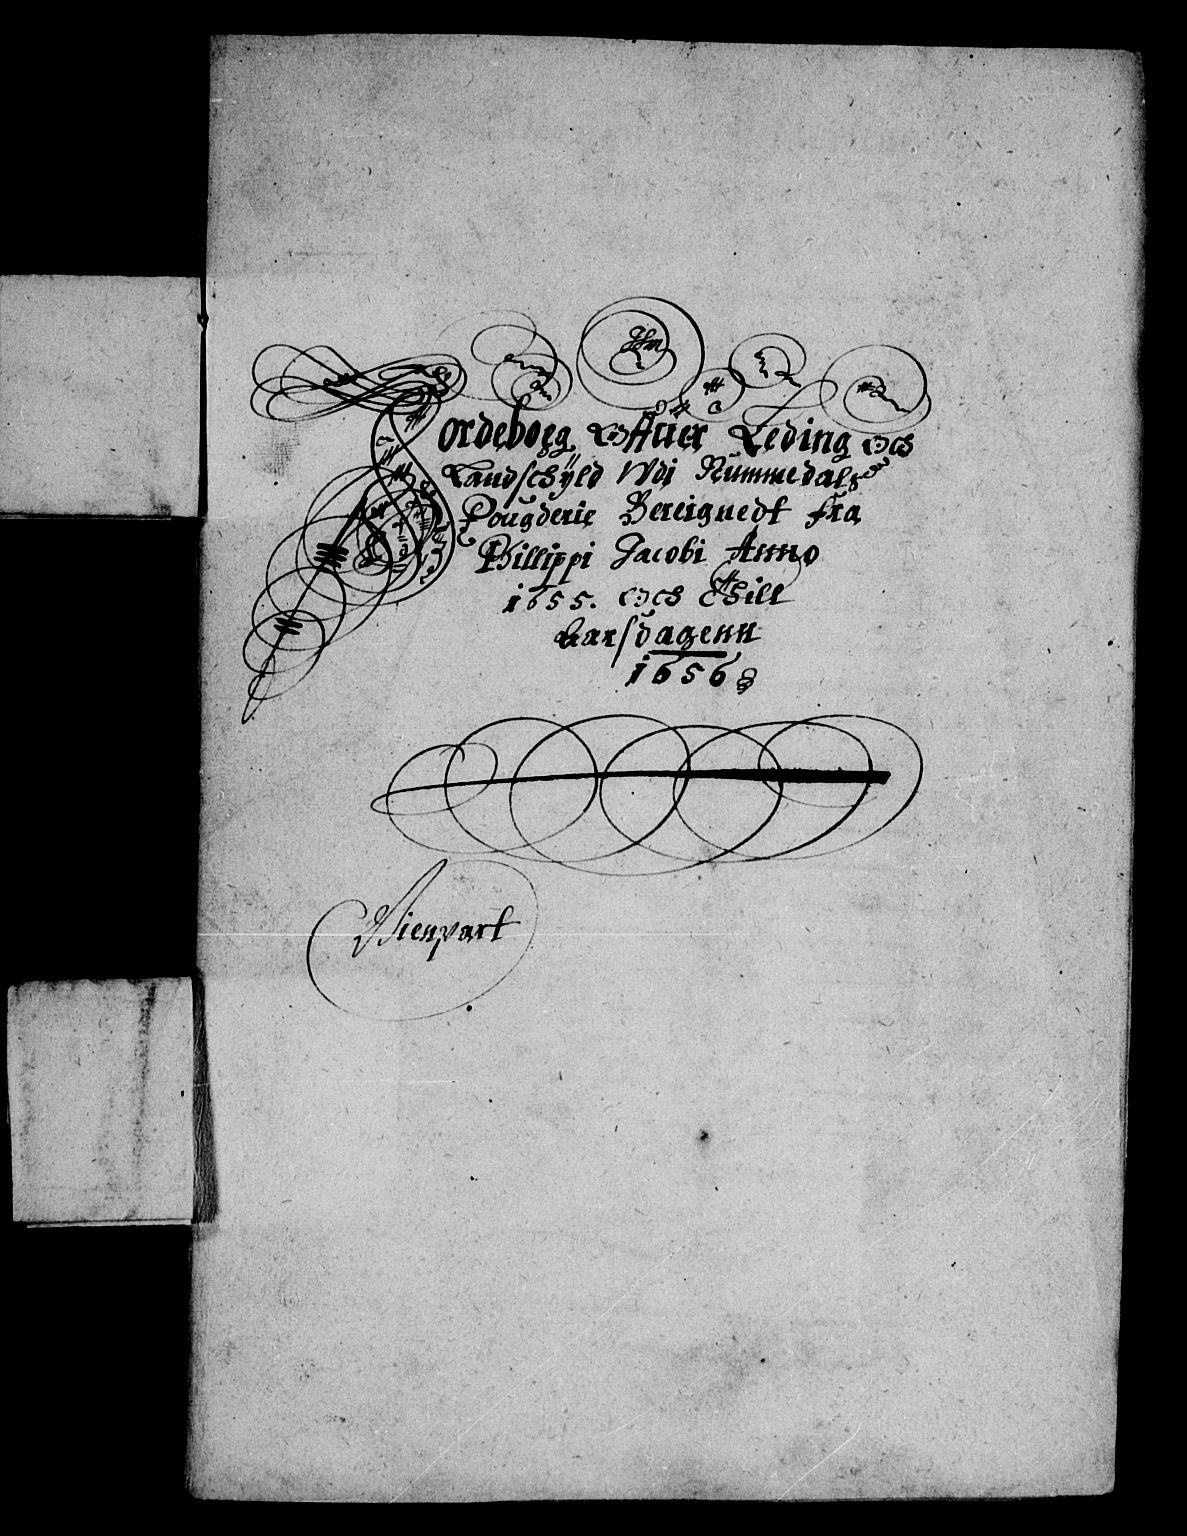 Jordeboeg Offuer Leding och
Landschÿld Vdj Nummedals
Fougderie Bereignedt fra
Phillippi Jacobi Anno
1655. Och Thill
Aarsdagenn
1656
Vienpart